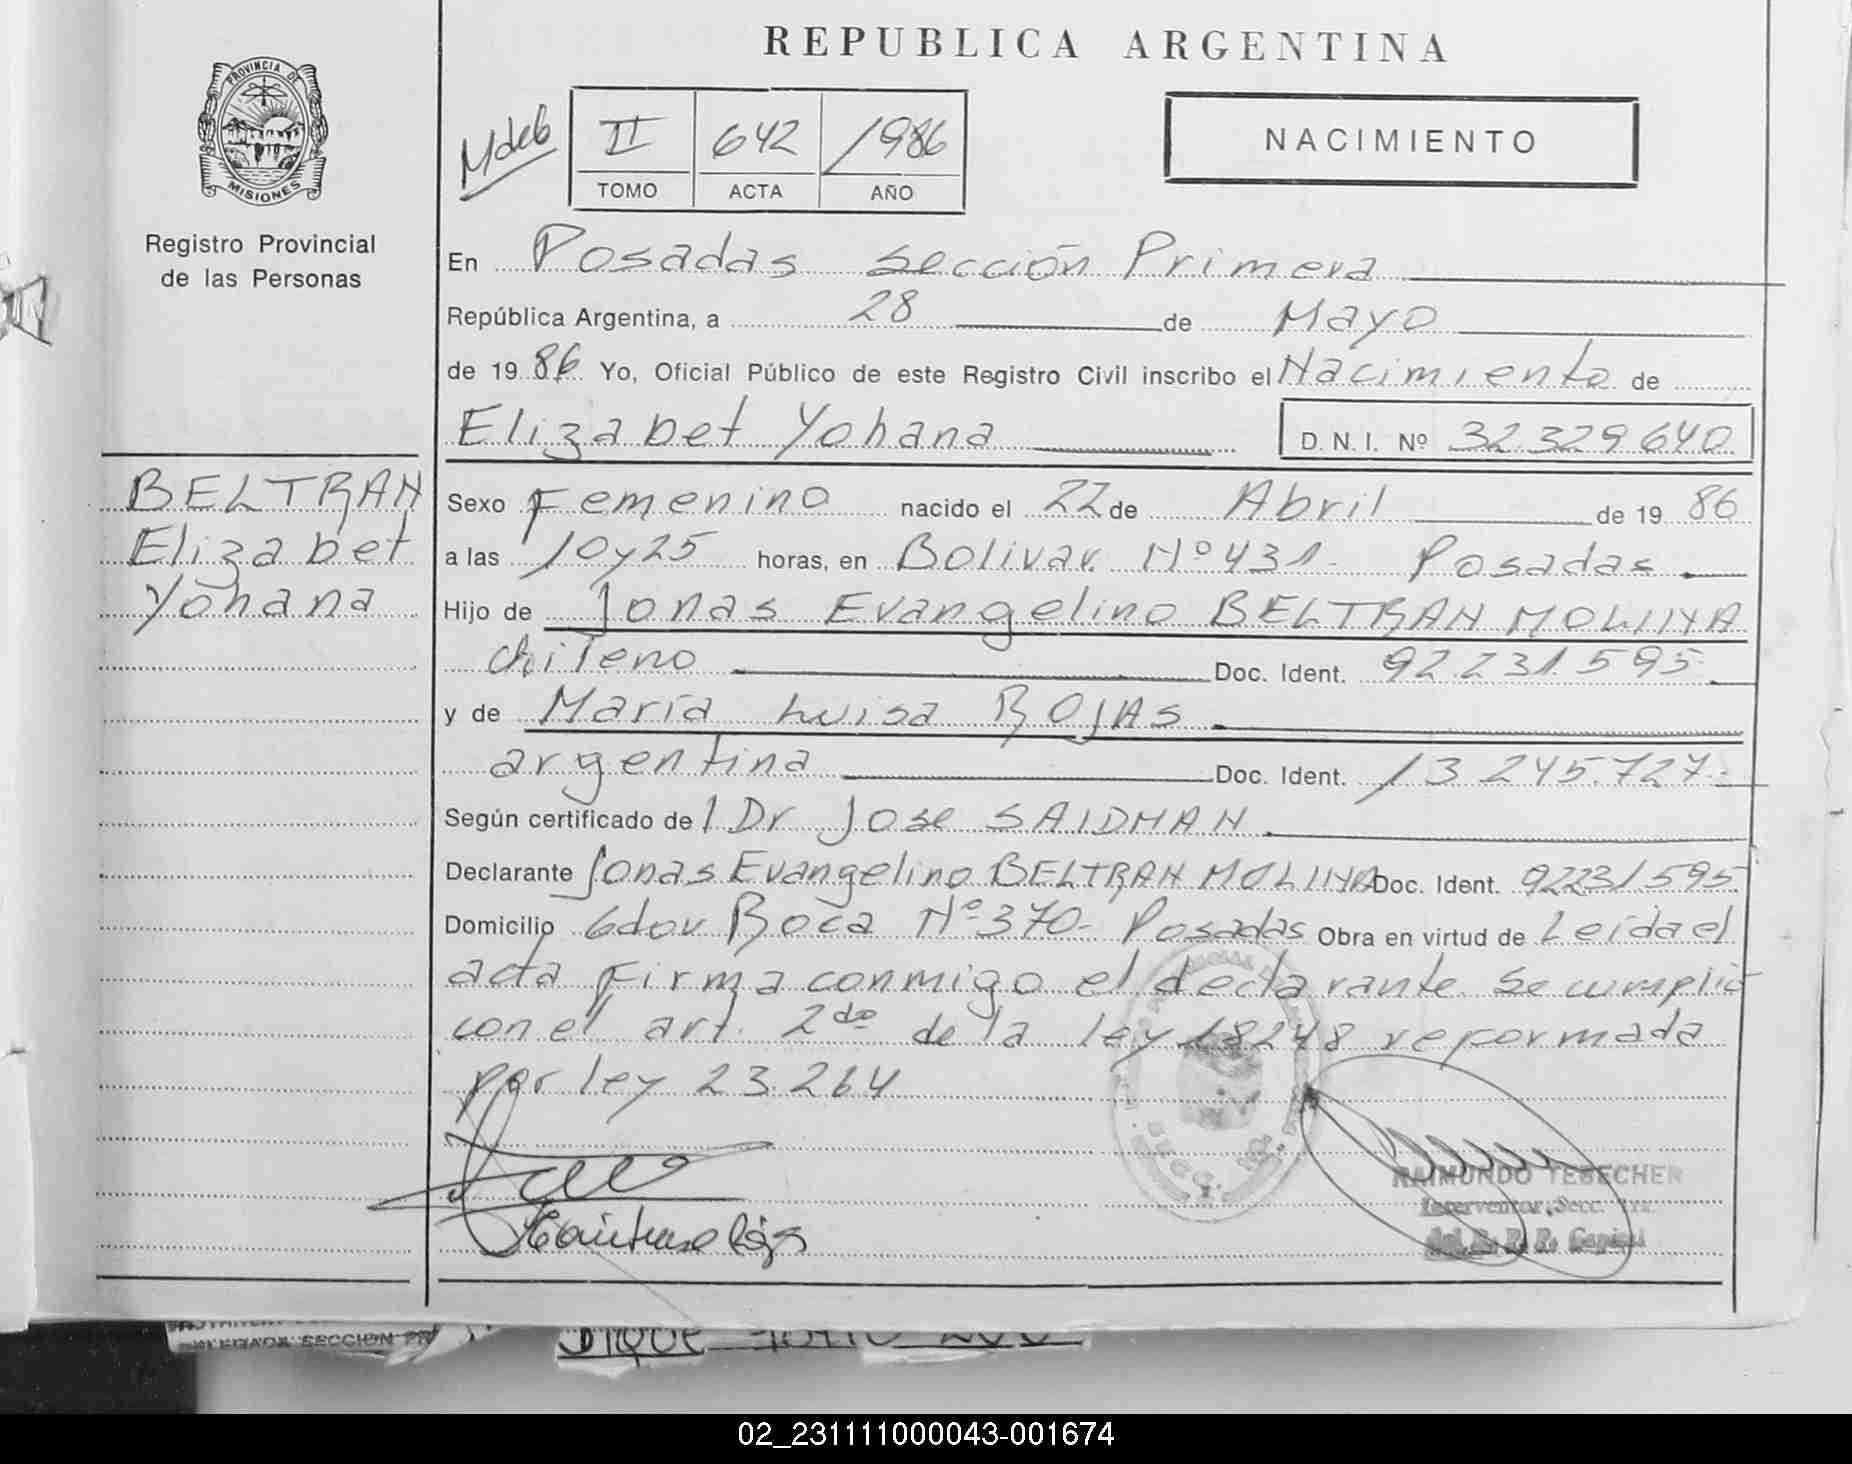 REPUBLICA ARGENTINA
PROVINCIA DE
MISIONES
Registro Provincial
de las Personas
II 642 1986
TOMO ACTA AÑO
NACIMIENTO
En Posadas Sección Primera
República Argentina, a 28 de Mayo
de 1986 Yo, Oficial Público de este Registro Civil inscribo el Nacimiento de
Elizabet Yohana D. N. I. Nº 32.329.640
BELTRAN
Elizabet
Yohana
Sexo Femenino nacido el 22 de Abril de 1986
a las 10 y 25 horas, en Bolivar Nº 431- Posadas
Hijo de Jonas Evangelino BELTRAN MOLINA
chileno Doc. Ident. 92.231.595
y de María Luisa ROJAS
argentina Doc. Ident. 13.245.727.-
Según certificado del Dr Jose SAIDMAN
Declarante Jonas Evangelino BELTRAN MOLINA Doc. Ident. 92231595
Domicilio Gdor Roca Nº 370- Posadas Obra en virtud de Leída el
acta firma conmigo el declarante. Se cumplió
con el art. 2do de la ley 18248 reformada
por ley 23.264
RAIMUNDO YESECHER
Interventor, Secc. 1ra.
del R. P. P. Capital
02_231111000043-001674